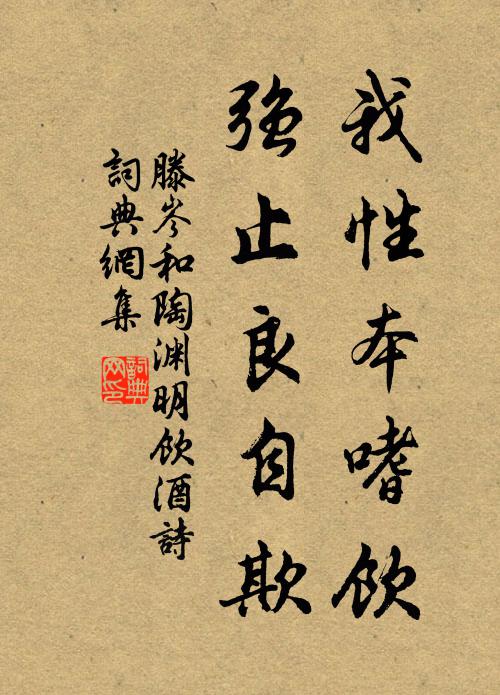 我性本嗜飲
強止良自欺
滕岑和陶淵明飲酒詩
詞典網集
詞典網印